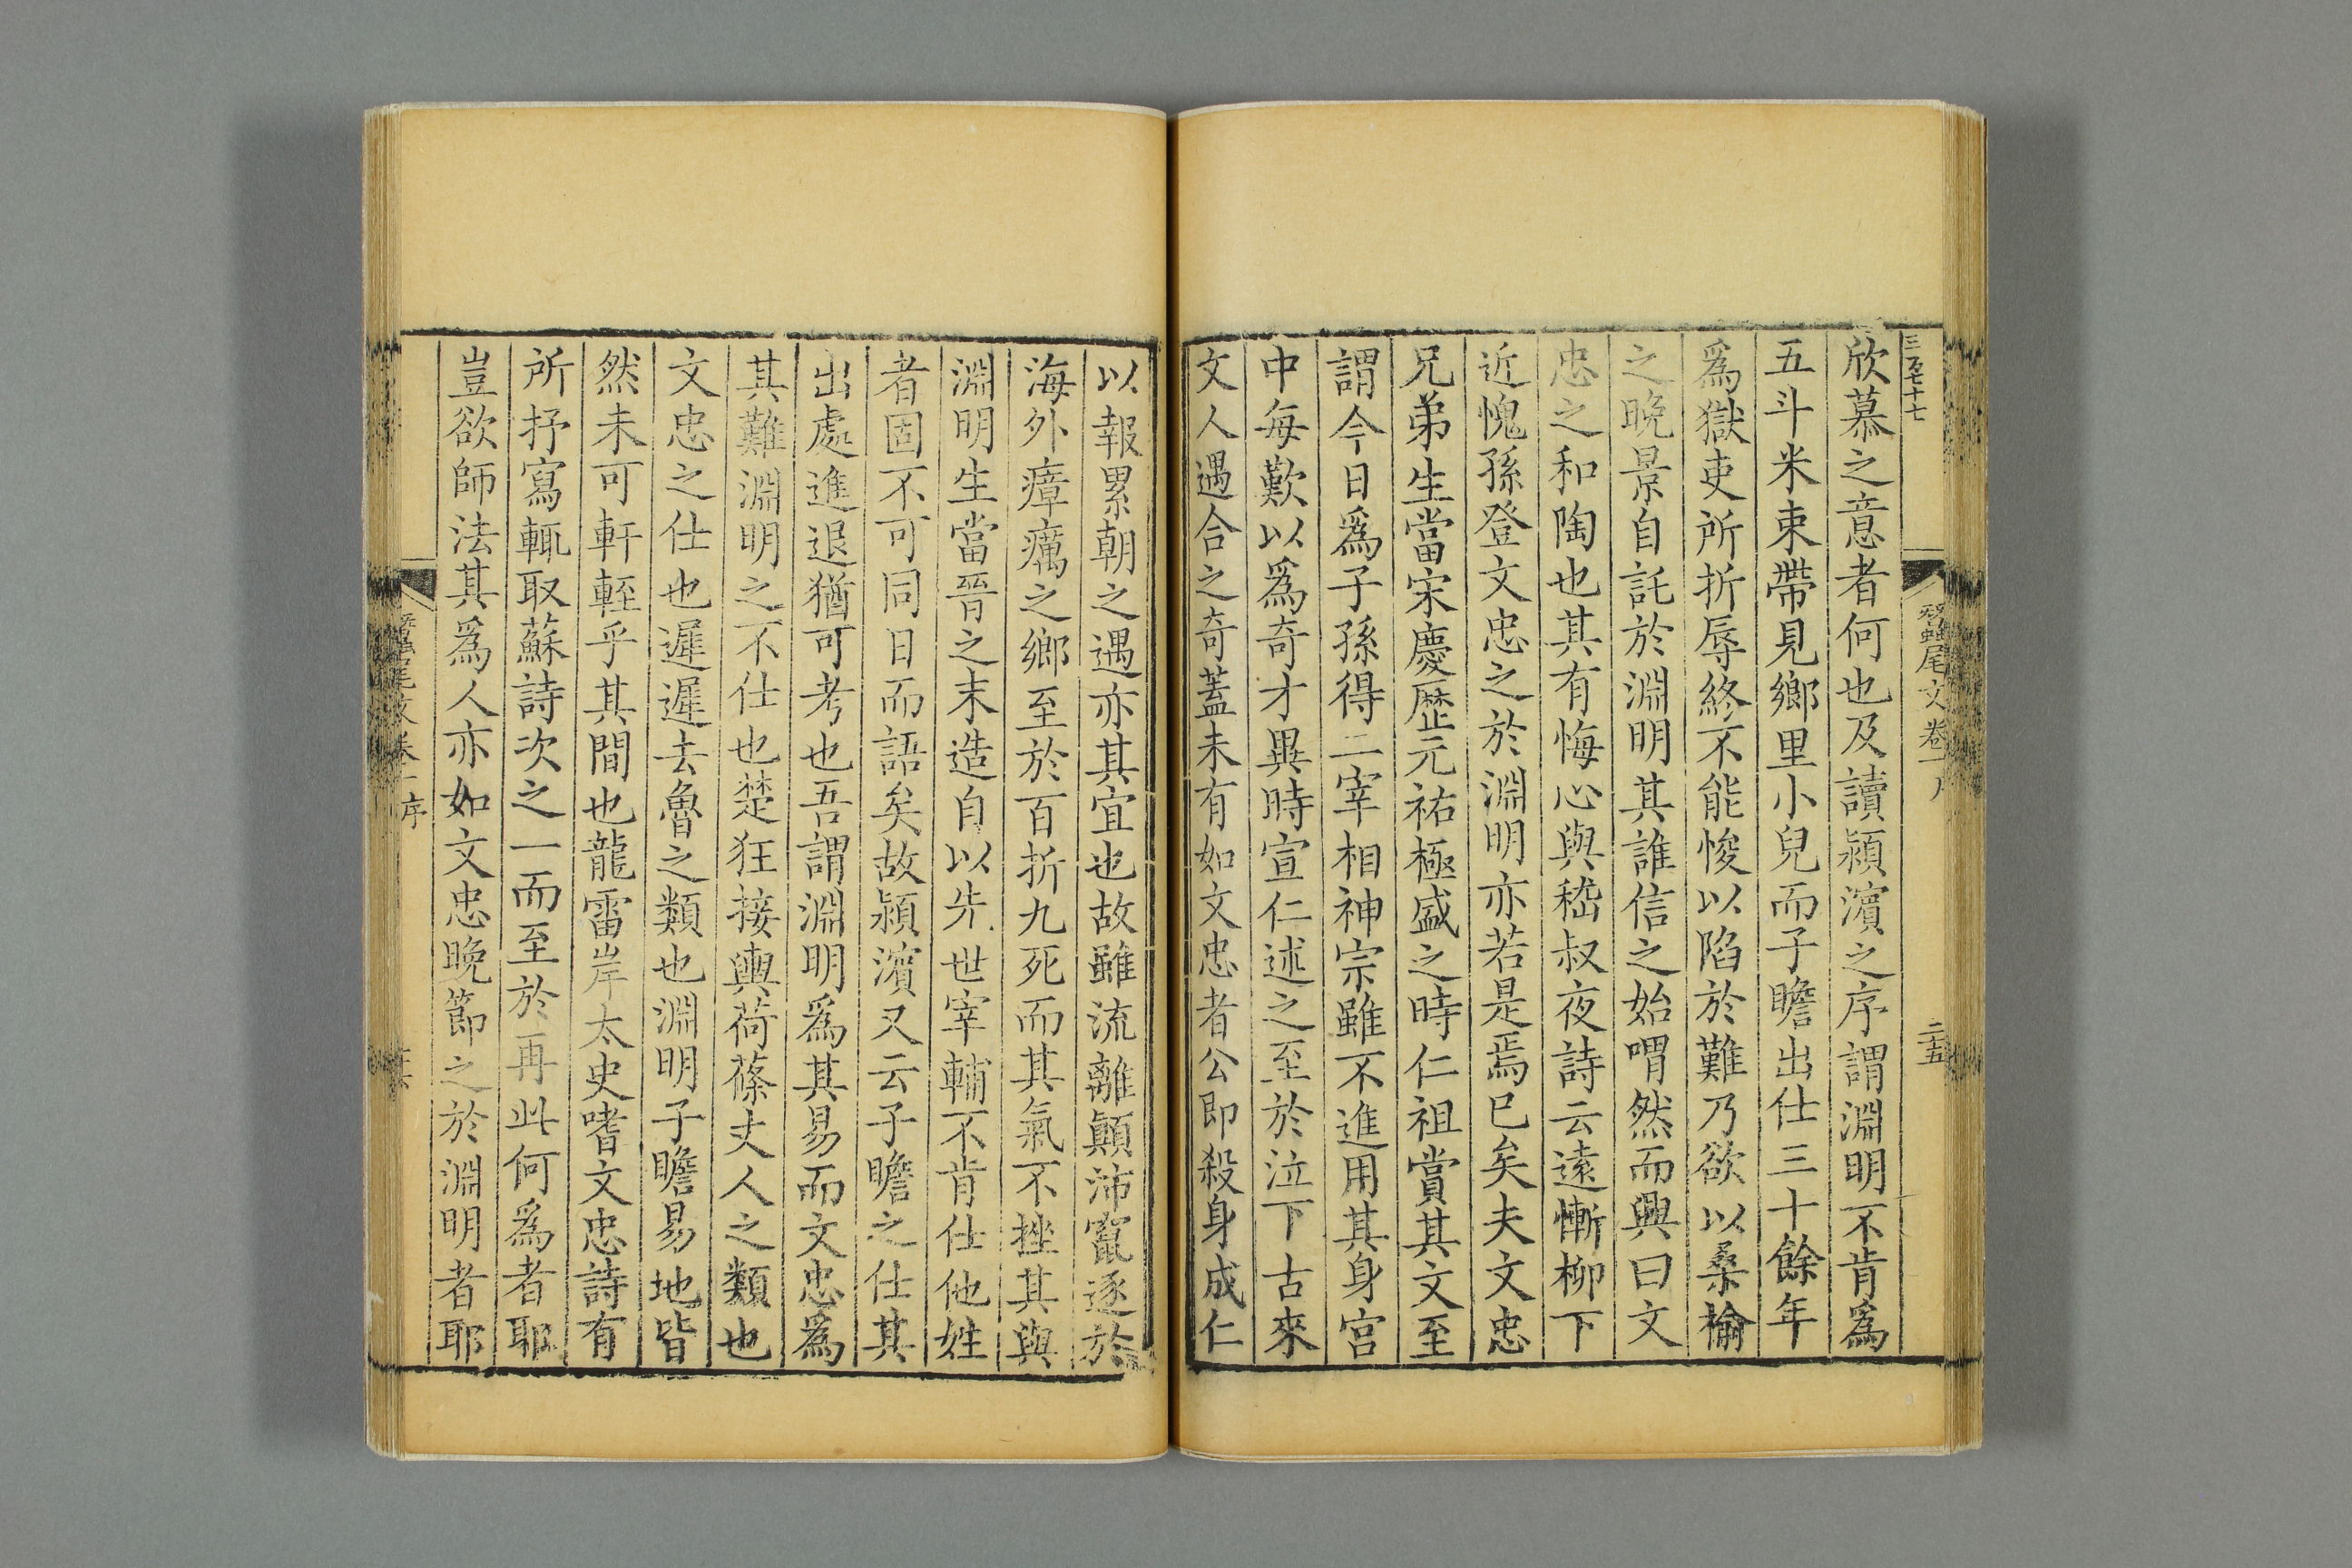 三百七十七
欣慕之意者何也及讀潁濵之序謂淵明不肯爲
五斗米束帶見鄉里小兒而子瞻出仕三十餘年
爲獄吏所折辱終不能悛以陷於難乃欲以桑榆
之晚景自託於淵明其誰信之始喟然而興曰文
忠之和陶也其有悔心與嵇叔夜詩云遠慚柳下
近愧孫登文忠之於淵明亦若是焉已矣夫文忠
兄弟生當宋慶歷元祐極盛之時仁祖賞其文至
謂今日爲子孫得二宰相神宗雖不進用其身宮
中每歎以爲奇才異時宣仁述之至於泣下古來
文人遇合之奇蓋未有如文忠者公即殺身成仁
蠶尾文卷一
二十五
以報累朝之遇亦其宜也故雖流離顚沛竄逐於
海外瘴癘之鄉至於百折九死而其氣不挫其與
淵明生當晉之末造自以先世宰輔不肯仕他姓
者固不可同日而語矣故潁濵又云子瞻之仕其
出處進退猶可考也吾謂淵明爲其易而文忠爲
其難淵明之不仕也楚狂接輿荷蓧丈人之類也
文忠之仕也遲遲去魯之類也淵明子瞻易地皆
然未可軒輊乎其間也龍雷岸太史嗜文忠詩有
所抒寫輒取蘇詩次之一而至於再此何爲者耶
豈欲師法其爲人亦如文忠晚節之於淵明者耶
蠶尾文卷一 序